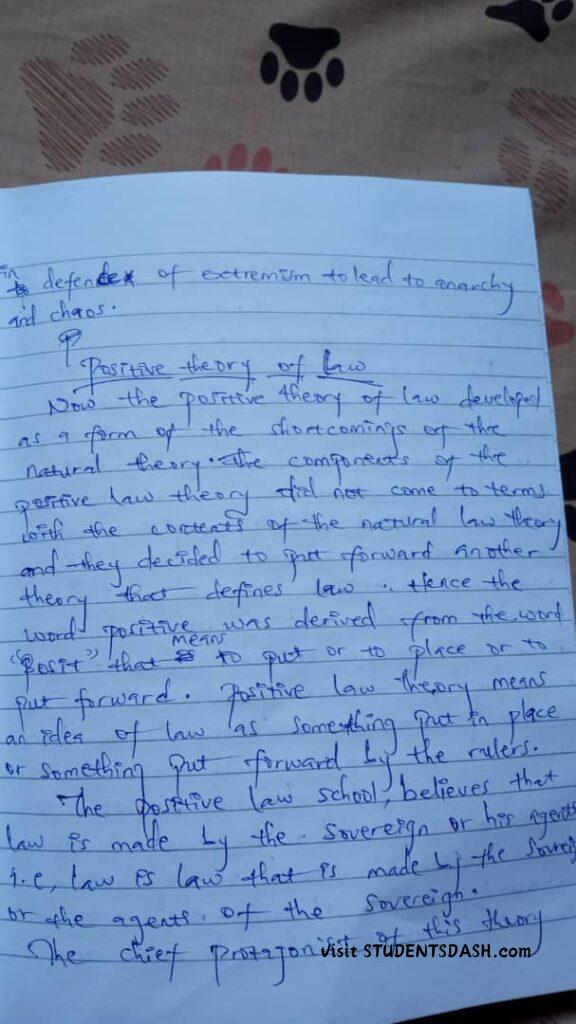 in defence of extremism to lead to anarchy
and chaos.
Positive theory of Law
Now the positive theory of law developed
as a form of the shortcomings of the
natural theory. The components of the
positive law theory did not come to terms
with the contents of the natural law theory
and they decided to put forward another
theory that defines law. Hence the
word positive was derived from the word
"Posit" that means to put or to place or to
put forward. Positive law theory means
an idea of law as something put in place
or something put forward by the rulers.
The positive law school, believes that
law is made by the sovereign or his agents
i.e, law is law that is made by the
or the agents of the sovereign.
The chief protagonist of this theory
Visit STUDENTSDASH.com